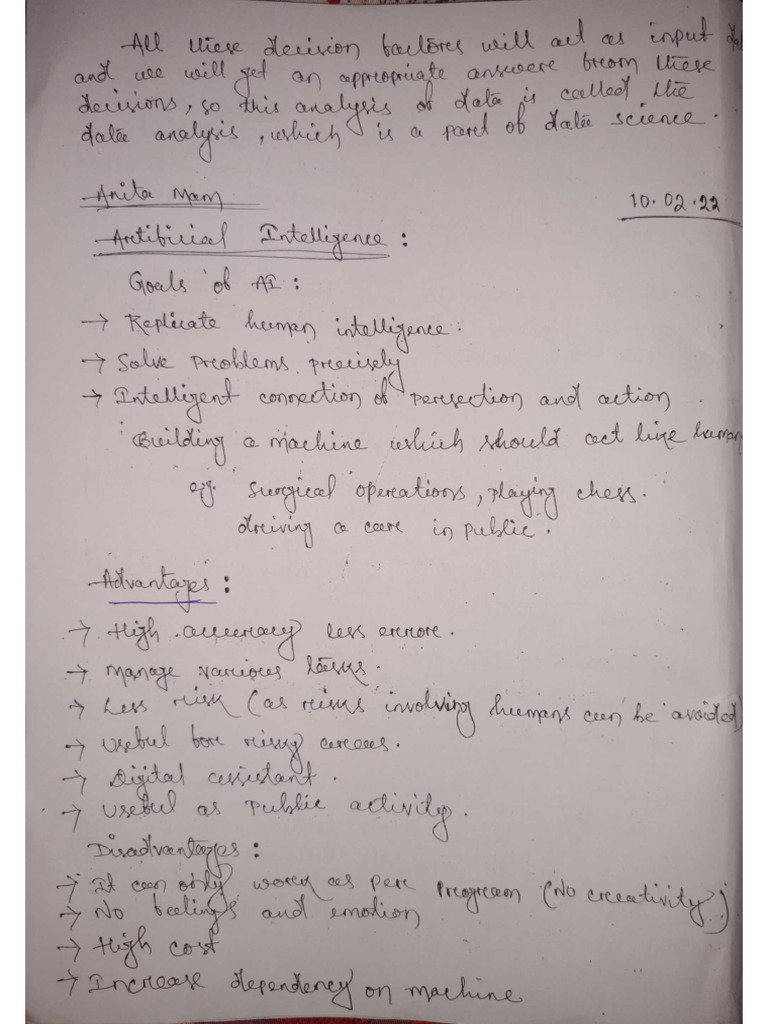 All these decision factores will act as input
and we will get an appropriate answere from these
decisions, so this analysis of data is called the
data analysis, which is a part of data science.
Anita Mam
10.02.22
Artificial Intelligence :
Goals of AI :
→ Replicate human intelligence.
→ Solve problems precisely
→ Intelligent connection of persection and action.
Building a machine which should act like human
eg. Surgical operations, playing chess.
driving a care in public.
Advantages :
→ High accuracy less errore.
→ Manage various tasks.
→ Less risk (as risks involving humans can be avoided)
→ Useful fore risky areas.
→ Digital assistant.
→ Useful as public activity.
Disadvantages :
→ It can only work as per program (No creativity)
→ No feelings and emotion
→ High cost
→ Increase dependency on machine